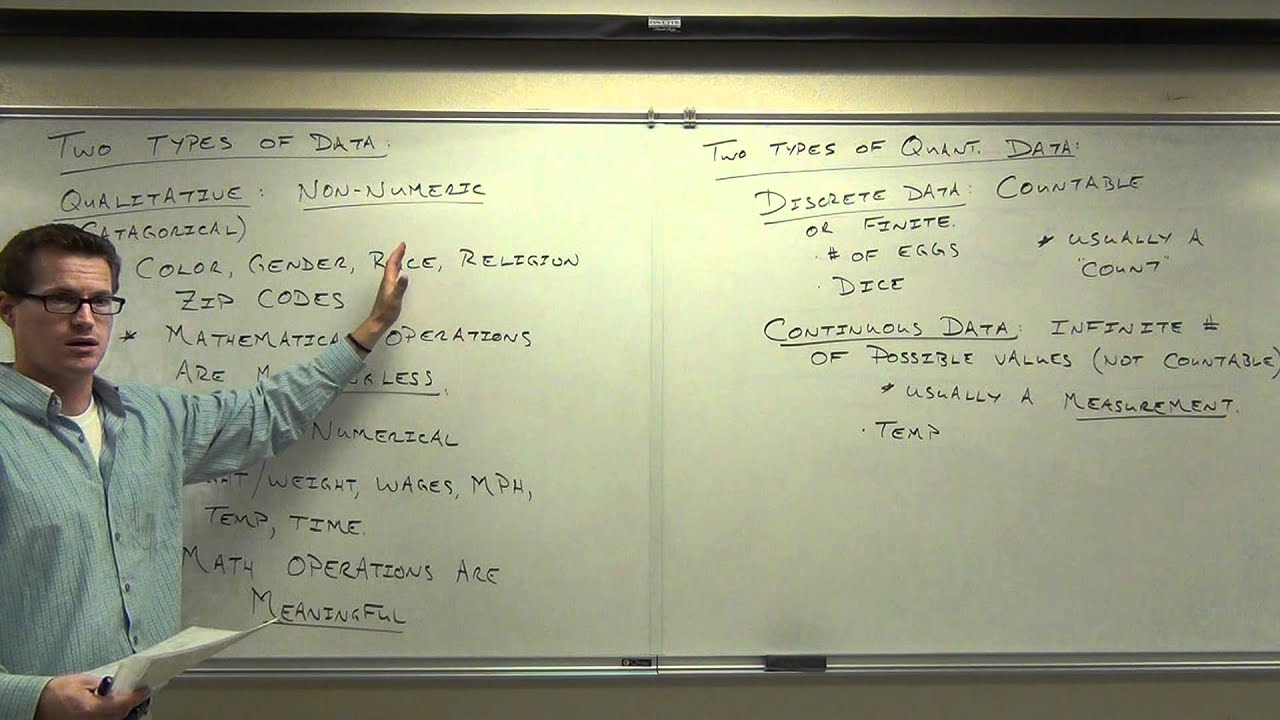 TWO TYPES OF DATA:
QUALITATIVE: NON-NUMERIC
CATAGORICAL)
COLOR, GENDER, RACE, RELIGION
ZIP CODES
* MATHEMATICAL OPERATIONS
ARE
NUMERICAL
/WEIGHT, WAGES, MPH,
TEMP, TIME.
MATH OPERATIONS ARE
MEANINGFUL
TWO TYPES OF QUANT. DATA:
DISCRETE DATA: COUNTABLE
OR FINITE.
· # OF EGGS
· DICE
* USUALLY A
"COUNT"
CONTINUOUS DATA: INFINITE #
OF POSSIBLE VALUES (NOT COUNTABLE)
* USUALLY A MEASUREMENT.
· TEMP